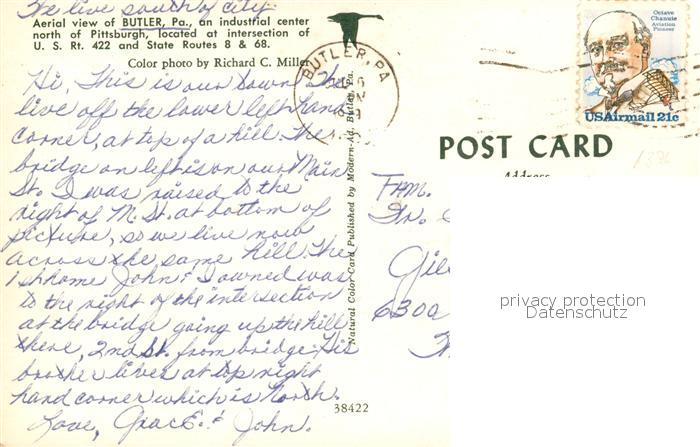 We live south of city.
Aerial view of BUTLER, Pa., an industrial center
north of Pittsburgh, located at intersection of
U. S. Rt. 422 and State Routes 8 & 68.
Color photo by Richard C. Miller
Hi, This is our town. We
live off the lower left hand
corner, at top of a hill. The
bridge on left is on our Main
St. I was raised to the
right of M. St. at bottom of
picture, so we live now
across the same hill. The
1st home John & I owned was
to the right of the intersection
at the bridge going up the hill
there, 2nd St. from bridge. His
brother lives at top right
hand corner which is North.
Love, Grace & John.
Natural Color Card Published by Modern-Ad, Butler, Pa.
38422
BUTLER, PA
Octave
Chanute
Aviation
Pioneer
USAirmail 21c
POST CARD
1386
Address
FAM.
6300
privacy protection
Datenschutz